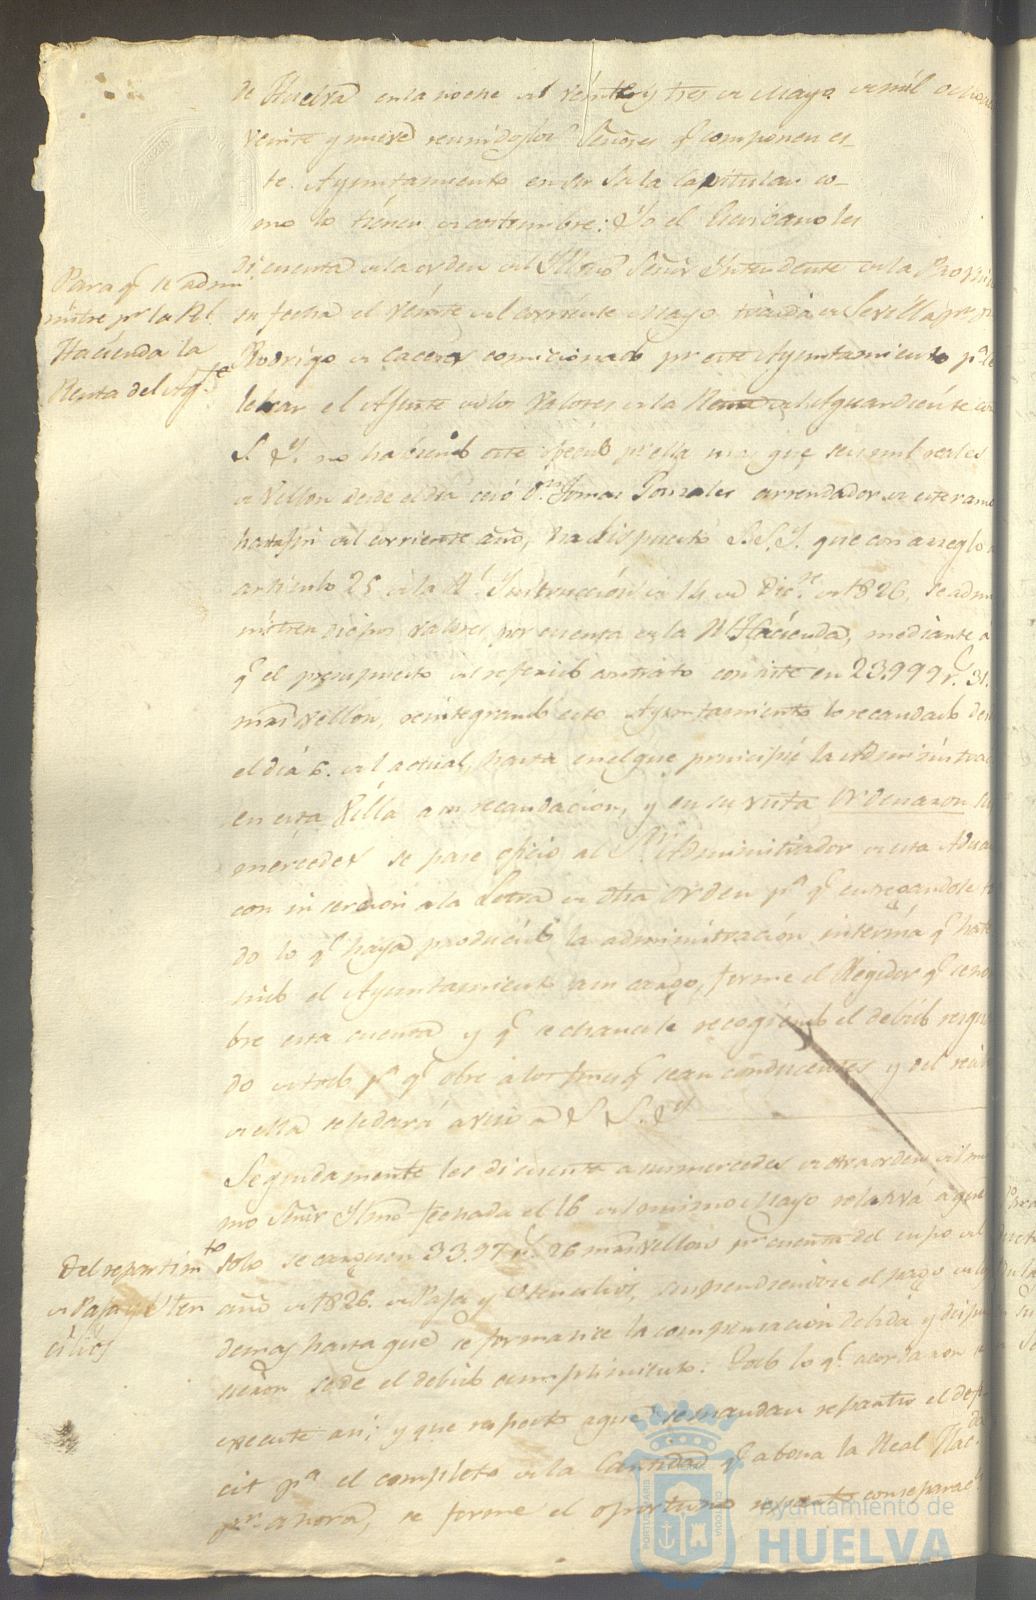 de Huelva en la noche del veinte y tres de Mayo de mil ochoc
veinte y nueve reunidos los Señores q componen es-
te Ayuntamiento en su Sala Capitular co-
mo lo tienen de costumbre: Yo el Escribano les
di cuenta de la orden del Yllmo Señor Yntendente de la Provin
Para q se admi
nistre pr la Rl
Hacienda la
Renta del Agte
su fecha el veinte del corriente Mayo traida de Sevilla pr
Rodrigo de Caceres comicionado pr este Ayuntamiento pa ce
lebrar el Ajuste de los Valores de la Renta del Aguardiente con
S. Y. no habiendo este ofrecido pr ella mas que seis mil reales
de Vellon desde el dia cesó Dn Tomas Gonzales arrendador de este ramo
hasta fin del corriente año, ha dispuesto S.S.Y. que con arreglo
articulo 25 de la Rl Ynstruccion de 14 de Dice de 1826, se admi
nistren dichos Valores por cuenta de la Rl Hacienda, mediante a
q el presupuesto del referido contrato consiste en 23.999 r. 31.
mrs vellon, reintegrando este Ayuntamiento lo recaudado des
el dia 6. del actual, hasta en el que principie la Administrac
en esta Villa a su recaudacion, y en su vista Ordenaron su
mercedes se pase oficio al Sr Administrador de esta Adua
con insercion a la Letra de dha orden pa q entregandole to
do lo q haya producido la administracion interina q ha te
nido el Ayuntamiento a su cargo, forme el Regidor q se no
bre esta cuenta y q se chancele recogiendo el debido resgu
do de todo pa q obre a los fines q sean conducentes y del resu
de ella se le dará aviso a S. S. Y.
Segundamente les di cuenta a sus mercedes de otra orden del mis
mo Señor Yllmo fechada el 16 del mismo Mayo relativa a que
Del repartimto
de Paja y Uten
cilios
solo se carguen 3397 r. 26 mrs vellon pr cuenta del cupo del
año de 1826. de Paja y Utencilios, suspendiendose el pago de lo
demas hasta que se formalice la compensacion debida y dispu
señor se de el debido cumplimiento: Todo lo q acordaron
execute asi; y que respecto a que se mandan repartir el defi
cit pa el completo de la Cantidad q abona la Real Hacda
pr ahora, se forme el oportuno repartro con separac
Ayuntamiento de
HUELVA
PORTUS MARIS
ET TERRAE CUSTODIA